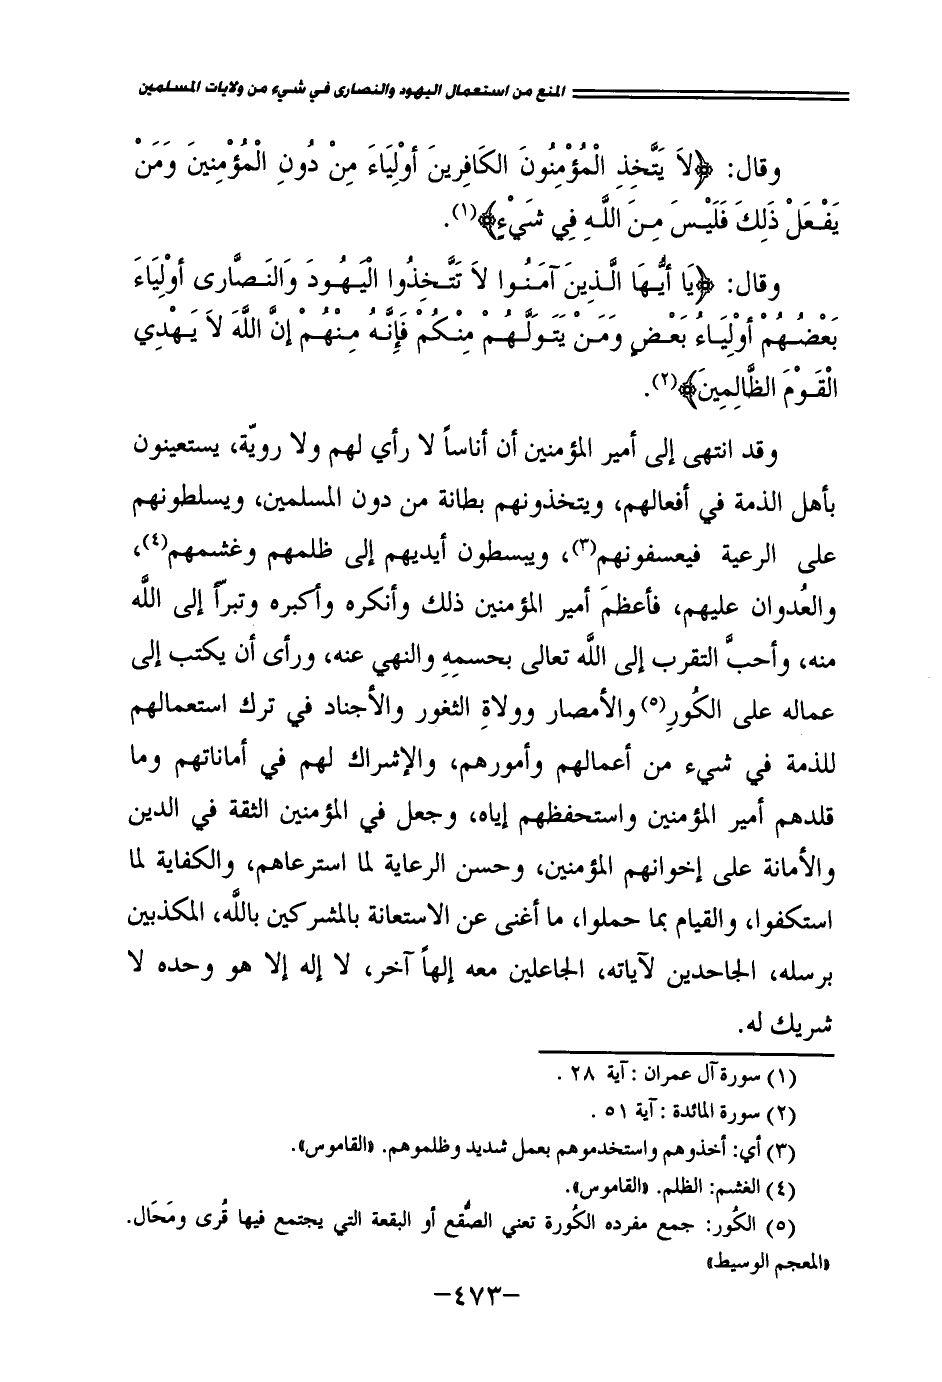 المنع من استعمال اليهود والنصارى في شيء من ولايات المسلمين
وقال: ﴿لاَ يَتَّخِذِ الْمُؤْمِنُونَ الكَافِرِينَ أَوْلِيَاءَ مِنْ دُونِ الْمُؤْمِنِينَ وَمَنْ
يَفْعَلْ ذَلِكَ فَلَيْسَ مِنَ اللَّهِ فِي شَيْءٍ﴾(١).
وقال: ﴿يَا أَيُّهَا الَّذِينَ آمَنُوا لاَ تَتَّخِذُوا الْيَهُودَ وَالنَصَّارى أوْلِيَاءَ
بَعْضُهُمْ أوْلِيَاءُ بَعْضٍ وَمَنْ يَتَوَلَّهُمْ مِنْكُمْ فَإِنَّهُ مِنْهُمْ إنَّ اللَّهَ لاَ يَهْدِي
الْقَوْمَ الظَّالِمِينَ﴾(٢).
وقد انتهى إلى أمير المؤمنين أن أناساً لا رأي لهم ولا رويّة، يستعينون
بأهل الذمة في أفعالهم، ويتخذونهم بطانة من دون المسلمين، ويسلطونهم
على الرعية فيعسفونهم(٣)، ويبسطون أيديهم إلى ظلمهم وغشمهم(٤)،
والعُدوان عليهم، فأعظمَ أمير المؤمنين ذلك وأنكره وأكبره وتبرّأ إلى اللَّه
منه، وأحبَّ التقرب إلى اللَّه تعالى بحسمِهِ والنهي عنه، ورأى أن يكتب إلى
عماله على الكُورِ(٥) والأمصار وولاةِ الثغور والأجناد في ترك استعمالهم
للذمة في شيء من أعمالهم وأمورهم، والإشراك لهم في أماناتهم وما
قلدهم أمير المؤمنين واستحفظهم إياه، وجعل في المؤمنين الثقة في الدين
والأمانة على إخوانهم المؤمنين، وحسن الرعاية لما استرعاهم، والكفاية لما
استكفوا، والقيام بما حملوا، ما أغنى عن الاستعانة بالمشركين باللَّه، المكذبين
برسله، الجاحدين لآياته، الجاعلين معه إلهاً آخر، لا إله إلا هو وحده لا
شريك له.
(١) سورة آل عمران : آية ٢٨ .
(٢) سورة المائدة : آية ٥١ .
(٣) أي: أخذوهم واستخدموهم بعمل شديد وظلموهم. «القاموس».
(٤) الغشم: الظلم. «القاموس».
(٥) الكُور: جمع مفرده الكُورة تعني الصُّقع أو البقعة التي يجتمع فيها قُرى ومَحَال.
«المعجم الوسيط»
-٤٧٣-